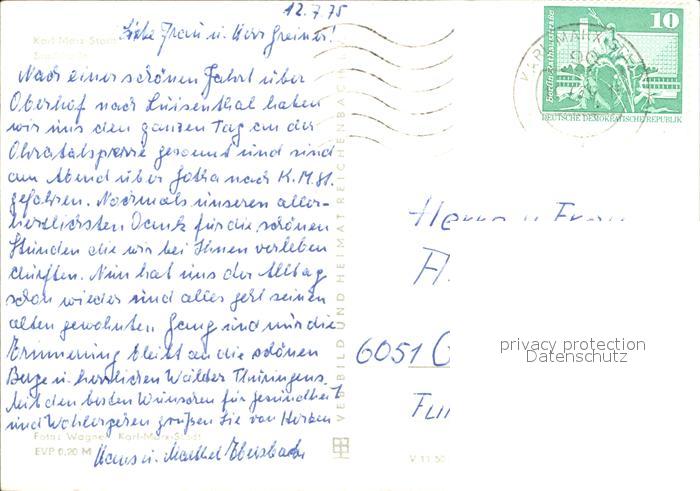 12.7.75
Liebe Frau u. Herr Greiner!
Nach einer schönen Fahrt über
Oberhof nach Luisenthal haben
wir uns den ganzen Tag an der
Ohratalsperre gesonnt und sind
am Abend über Gotha nach K.M.St.
gefahren. Nochmals unseren aller-
herzlichsten Dank für die schönen
Stunden die wir bei Ihnen verleben
durften. Nun hat uns der Alltag
schon wieder und alles geht seinen
alten gewohnten Gang und nur die
Erinnerung bleibt an die schönen
Berge u. herrlichen Wälder Thüringens.
Mit den besten Wünschen für Gesundheit
und Wohlergehen grüßen Sie von Herzen
Hans u.
Karl-Marx-Stadt
Foto: Wagner, Karl-Marx-Stadt
EVP 0,20 M
VEB BILD UND HEIMAT REICHENBACH
V 11 50
10
Berlin, Rathausstraße
DEUTSCHE DEMOKRATISCHE REPUBLIK
KARL-MARX-STADT
Herrn u. Frau
6051
privacy protection
Datenschutz